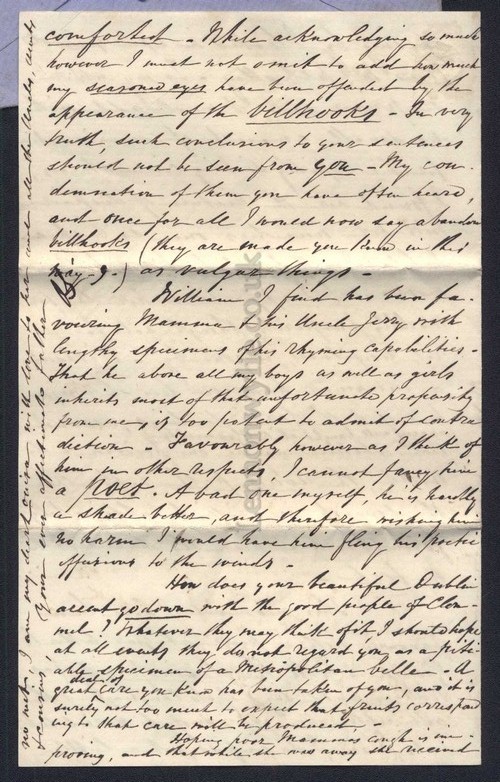 comforted - While acknowledging so much
however I must not omit to add how much
my seasoned eyes have been offended by the
appearance of the billhooks - In very
truth, such conclusions to your sentences
should not be seen from you - My con-
demnation of them you have often heard,
and once for all I would now say abandon
billhooks (they are made you know in this
way - ) as vulgar things -
William I find has been fa-
vouring Mamma & his Uncle Jerry with
lengthy specimens of his rhyming capabilities -
That he above all my boys as well as girls
inherits most of that unfortunate propensity
from me, is too patent to admit of contra
diction - Favourably however as I think of
him in other respects, I cannot fancy him
a Poet. A bad one myself, he is hardly
a shade better, and therefore wishing him
no harm I would have him fling his poetic
effusions to the winds -
How does your beautiful Dublin
accent go down with the good people of Clon-
mel? Whatever they may think of it, I should hope
at all events they do not regard you as a piti-
able specimen of a Metropolitan belle - A
great deal of care you know has been taken of you, and it is
surely not too much to expect that fruits correspond
ing to that care will be produced -
Hoping poor Mamma's cough is im-
proving, and that while she was away she received
no wet, I am my dear with love to her and all the Uncles, Aunts
& cousins, Your ever affectionate Father